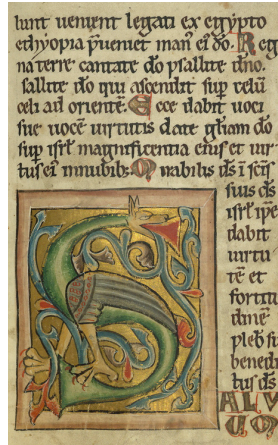 lunt uenient legati ex egypto
ethyopia p̄ueniet man᷒ ei᷒ dō. Reg
na terre cantate dō psallite dn̄o.
sallite dō qui ascendit sup̄ celū
celi ad orientē. Ecce dabit uoci
sue uocē uirtutis date głiam dō
sup̄ isrł magnificentia eius et uir
tus ei᷒ in nubib; Mirabilis ds̄ ī sc̄is
suis ds̄
isrł ip̄e
dabit
uirtu
tē et
fortitu
dinē
pleb su
benedi
tus ds̄
ALV